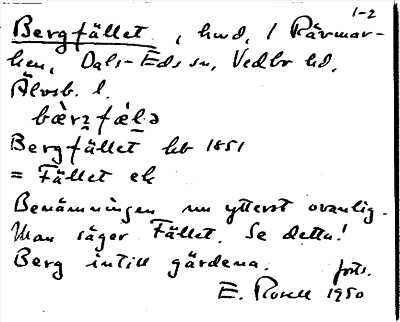 1-2
Bergfället, hmd, / Rävmar-
ken, Dals-Eds sn, Vedbo hd,
Älvsb. l.
bæ̀rzfæ̀lə
Bergfället hb 1851
= Fället ek
Benämningen nu ytterst ovanlig.
Man säger Fället. Se detta!
Berg intill gärdena. forts.
E. Rosell 1950